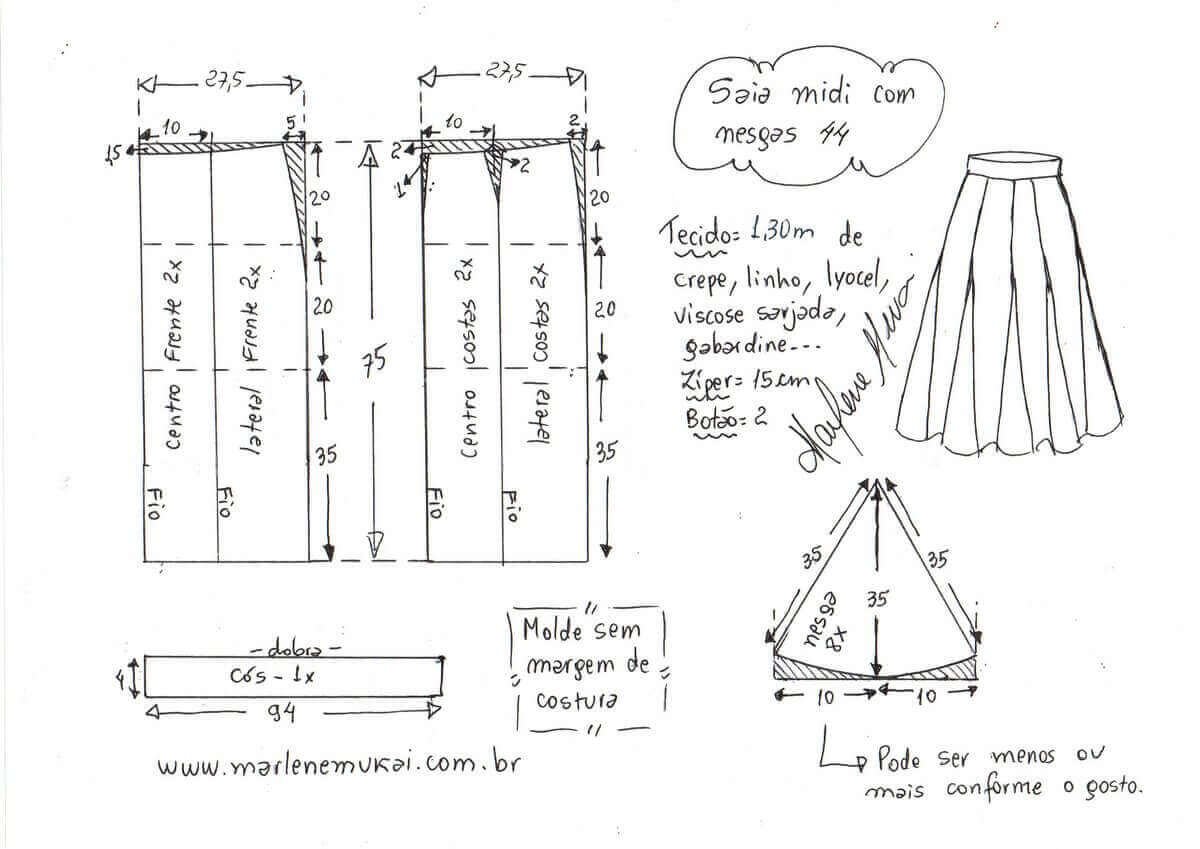 27,5
10
5
1,5
20
20
35
centro Frente 2x
lateral Frente 2x
Fio
Fio
75
27,5
10
2
2
1
2
20
20
35
centro costas 2x
lateral costas 2x
Fio
Fio
Saia midi com
nesgas 44
Tecido= 1,30m de
crepe, linho, lyocel,
viscose sarjada,
gabardine---
Zíper= 15cm
Botão= 2
Marlene Mukai
35
35
35
nesga
8x
10
10
Pode ser menos ou
mais conforme o gosto.
-dobra-
cós - 1x
4
94
Molde sem
margem de
costura
www.marlenemukai.com.br